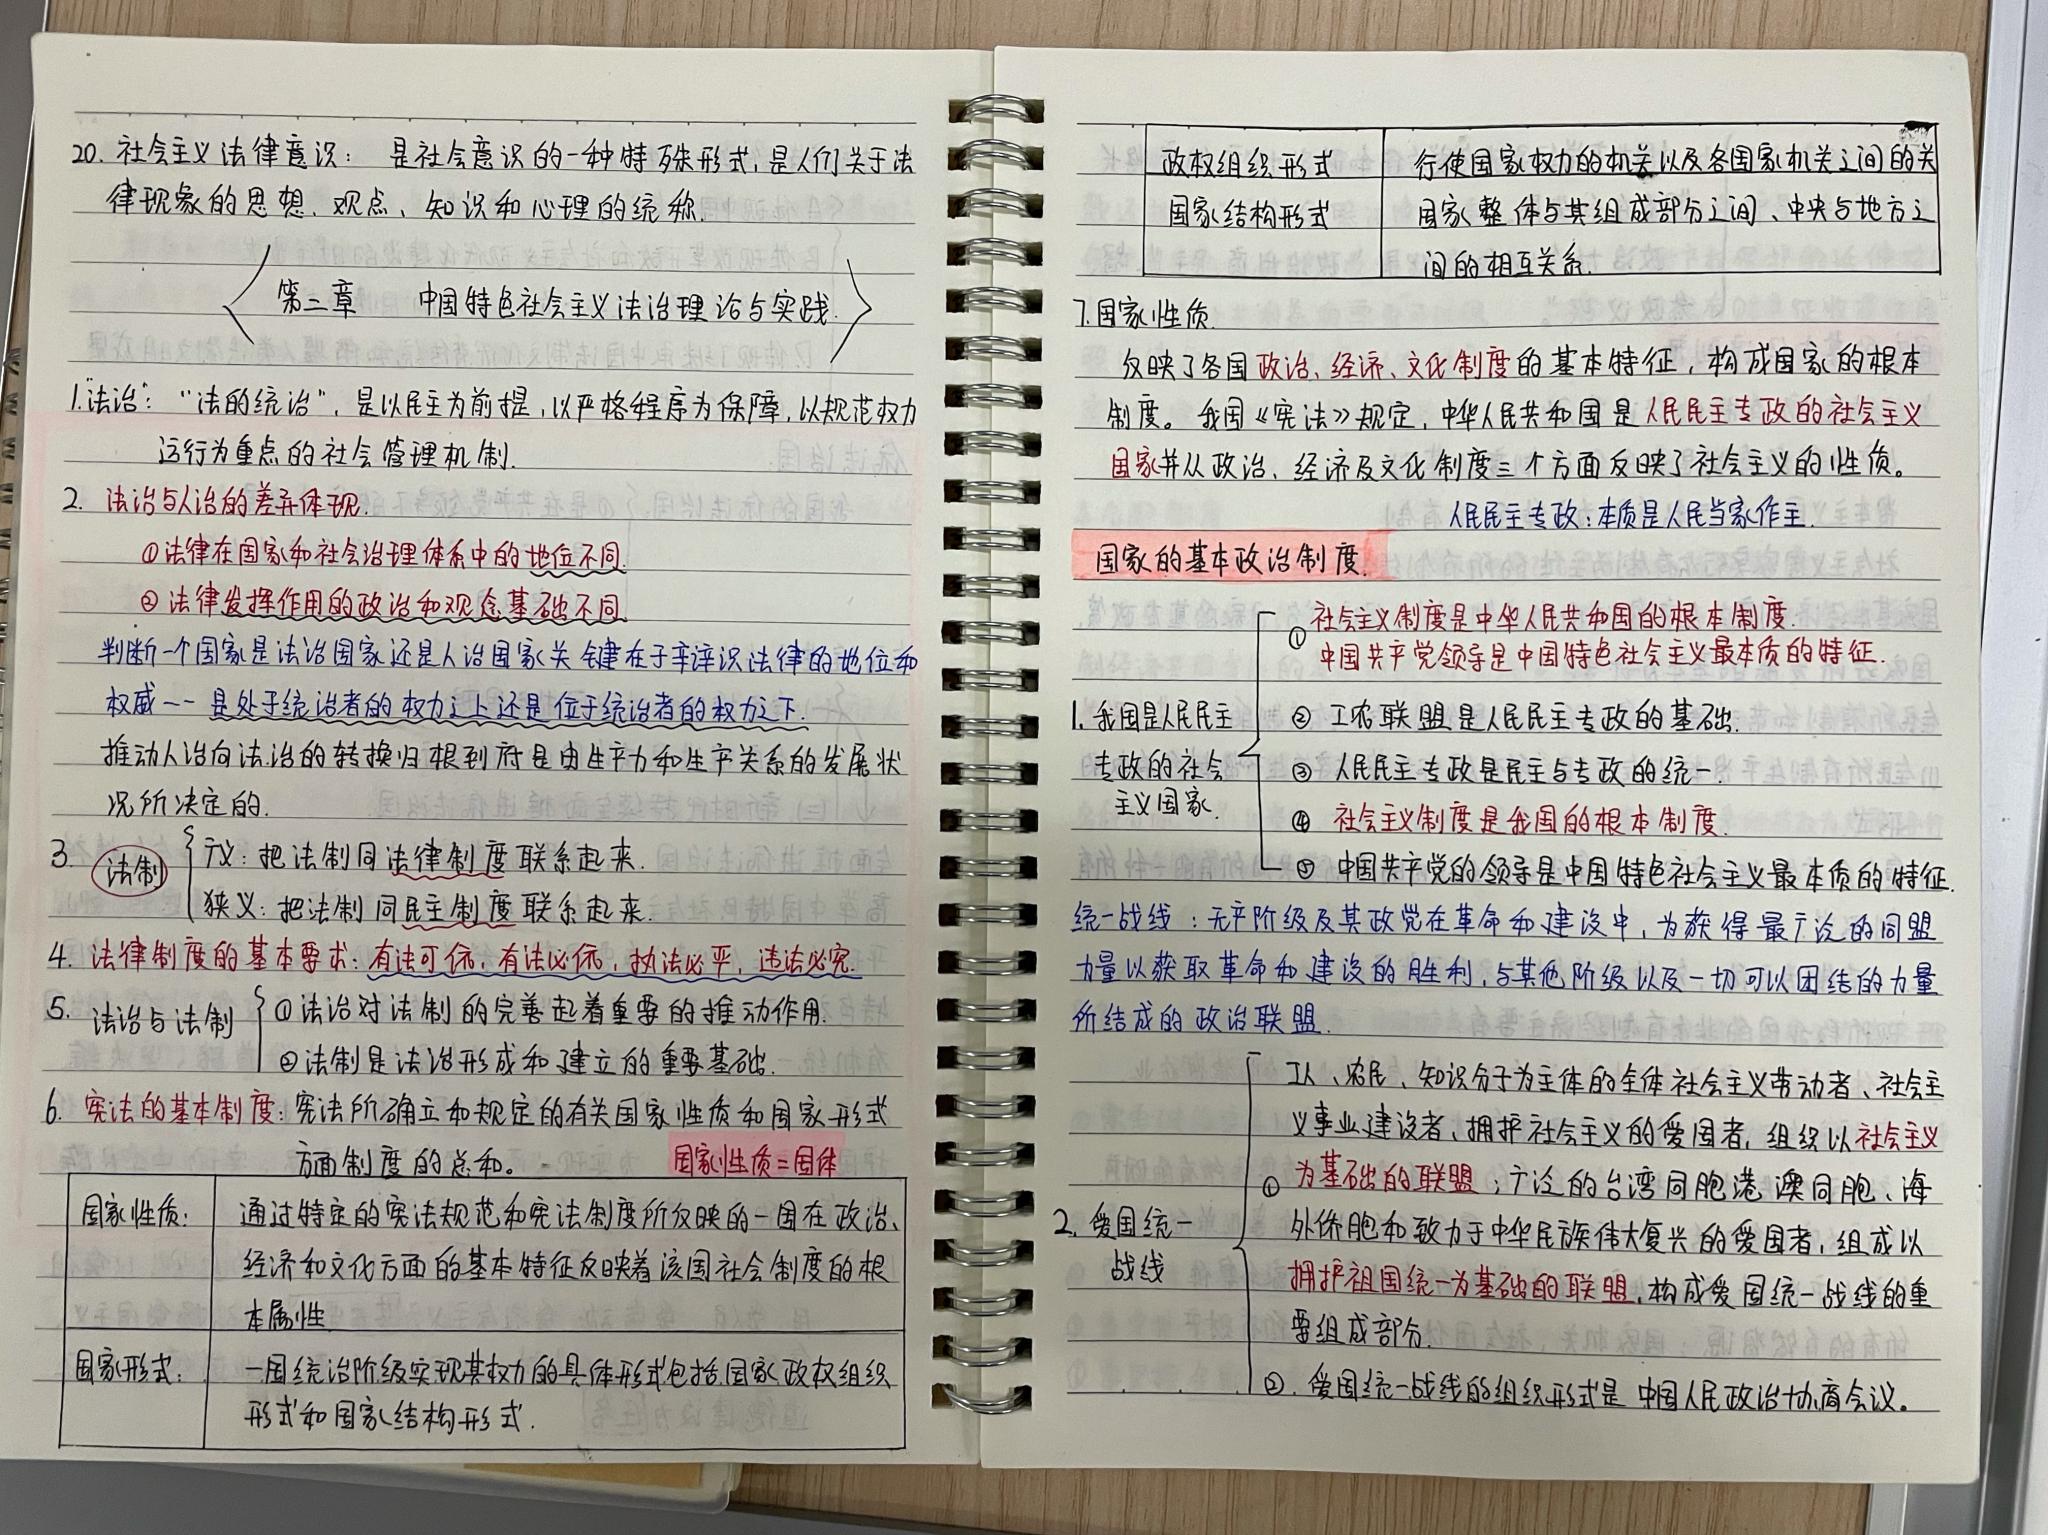 20. 社会主义法律意识： 是社会意识的一种特殊形式，是人们关于法
律现象的思想、观点、知识和心理的统称.
第二章 中国特色社会主义法治理论与实践.
1."法治"："法的统治"，是以民主为前提，以严格程序为保障，以规范权力
运行为重点的社会管理机制.
2. 法治与人治的差异体现.
①法律在国家和社会治理体系中的地位不同.
②法律发挥作用的政治和观念基础不同.
判断一个国家是法治国家还是人治国家关键在于辛谇识法律的地位和
权威——是处于统治者的权力之上还是位于统治者的权力之下.
推动人治向法治的转换归根到府是由生产力和生产关系的发展状
况所决定的.
3. 法制
广义：把法制同法律制度联系起来.
狭义：把法制同民主制度联系起来.
4. 法律制度的基本要求：有法可依，有法必依，执法必严，违法必究.
5. 法治与法制
①法治对法制的完善起着重要的推动作用.
②法制是法治形成和建立的重要基础.
6. 宪法的基本制度：宪法所确立和规定的有关国家性质和国家形式
方面制度的总和。
国家性质=国体
国家性质：
通过特定的宪法规范和宪法制度所反映的一国在政治、
经济和文化方面的基本特征反映着该国社会制度的根
本属性
国家形式：
一国统治阶级实现其权力的具体形式包括国家政权组织
形式和国家结构形式.
政权组织形式 行使国家权力的机关以及各国家机关之间的关
国家结构形式 国家整体与其组成部分之间、中央与地方之
间的相互关系.
7.国家性质.
反映了各国政治、经济、文化制度的基本特征，构成国家的根本
制度。我国《宪法》规定，中华人民共和国是人民民主专政的社会主义
国家并从政治、经济及文化制度三个方面反映了社会主义的性质。
人民民主专政：本质是人民当家作主.
国家的基本政治制度.
1. 我国是人民民主
专政的社会
主义国家.
① 社会主义制度是中华人民共和国的根本制度.
中国共产党领导是中国特色社会主义最本质的特征.
② 工农联盟是人民民主专政的基础.
③ 人民民主专政是民主与专政的统一.
④ 社会主义制度是我国的根本制度.
⑤ 中国共产党的领导是中国特色社会主义最本质的特征.
统一战线：无产阶级及其政党在革命和建设中，为获得最广泛的同盟
力量以获取革命和建设的胜利，与其他阶级以及一切可以团结的力量
所结成的政治联盟.
2. 爱国统一
战线
①
工人、农民、知识分子为主体的全体社会主义劳动者、社会主
义事业建设者、拥护社会主义的爱国者，组织以社会主义
为基础的联盟；广泛的台湾同胞港澳同胞、海
外侨胞和致力于中华民族伟大复兴的爱国者，组成以
拥护祖国统一为基础的联盟，构成爱国统一战线的重
要组成部分.
②. 爱国统一战线的组织形式是中国人民政治协商会议。